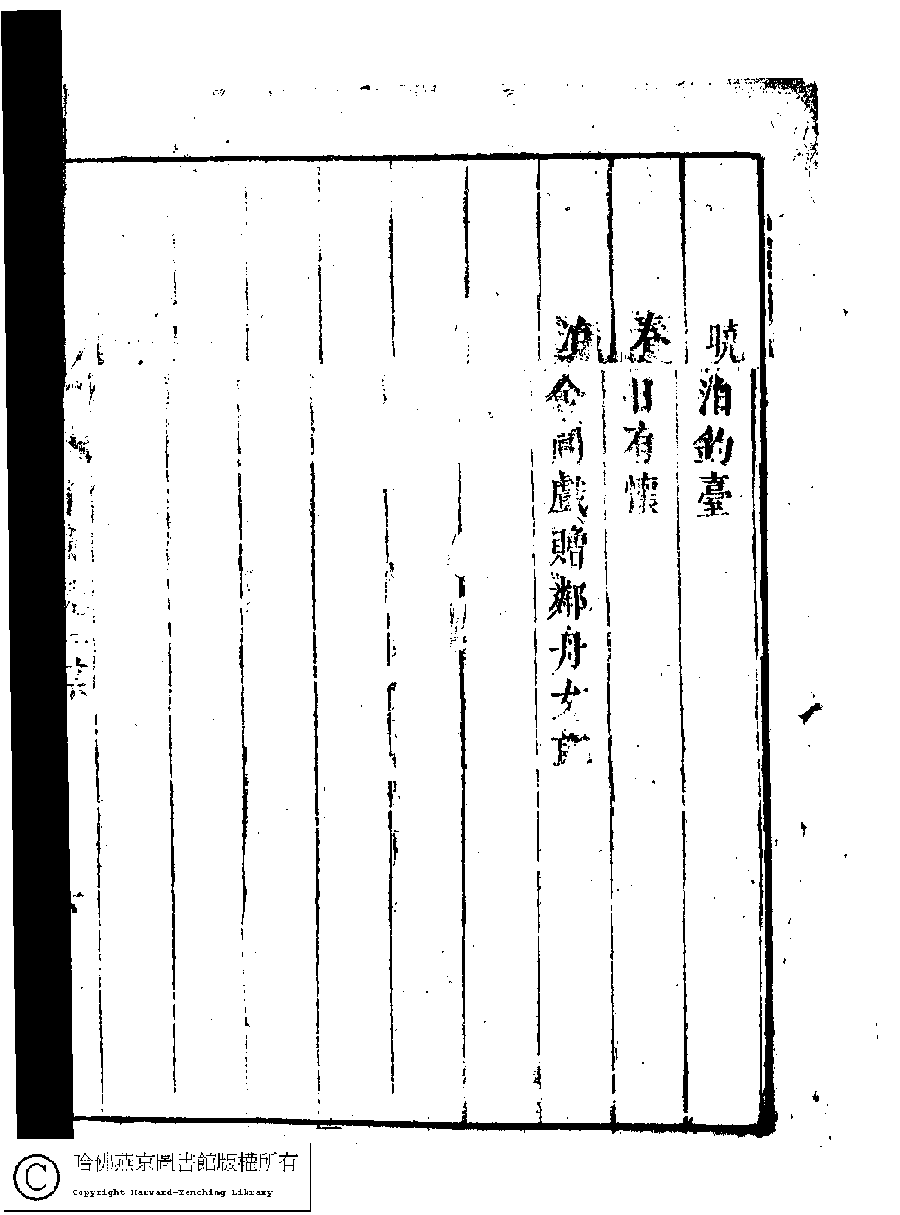 曉泊釣臺
春日有懷
泊舍間戲贈鄰舟女
哈佛燕京圖書館版權所有
Copyright Harvard-Yenching Library